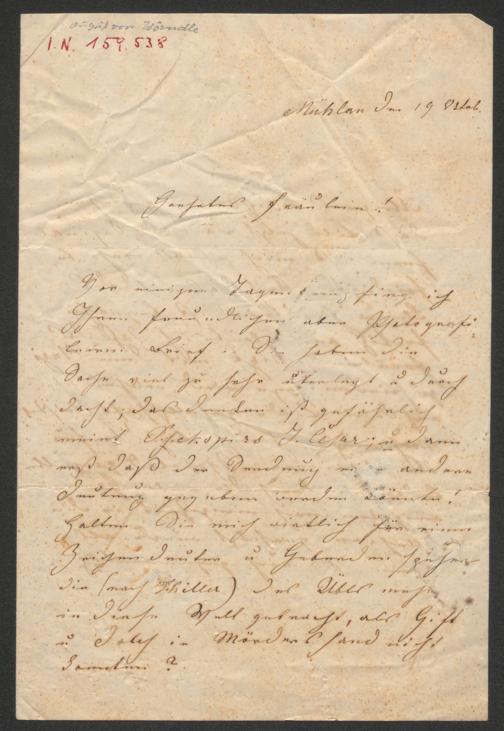 August von Wörndle
I.N. 159.538
Mühlau den 19 Octob.
Geehrtes Fräulein!
Vor einigen Tagen empfing ich
Ihren freundlichen aber Photografi-
leeren Brief. Sie haben die
Sache viel zu sehr überlegt u durch
dacht, das denken ist gefährlich
meint Schekspirs J. Cäsar, u dann
daß der Sendung eine andere
Deutung gegeben werden könnte!
Halten Sie mich wirklich für einen
Zeichendeuter u Geberden späher
die (nach Schiller) des Übels mehr
in diese Welt gebracht, als Gift
u Dolch in Mörders Hand nicht
konnten?